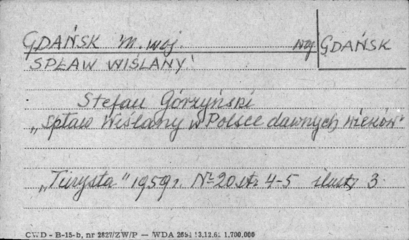 GDAŃSK m. woj. woj GDAŃSK
SPŁAW WIŚLANY
Stefan Górzyński
„Spław Wiślany w Polsce dawnych wieków"
„Turysta" 1959 r. № 20 str. 4-5 ilustr. 3
CWD - B-15-b, nr 2827/ZW/P — WDA 1.700.000